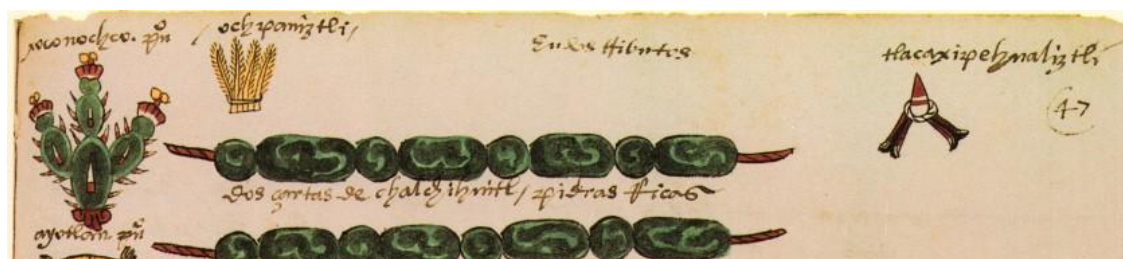 xoconochco. pūo
ochpaniztli
En dos tributos
tlacaxipehualiztli
47
dos sartas de chalchihuitl / piedras ricas
ayotlan pūo